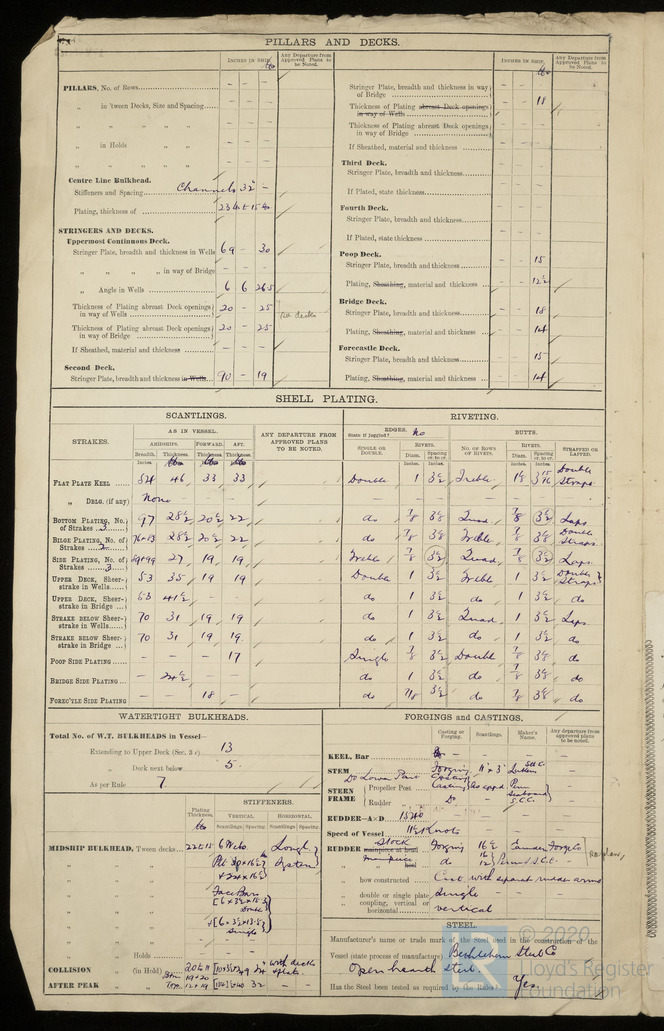 PILLARS AND DECKS.
INCHES IN SHIP.
Any Departure from Approved Plans to be Noted.
PILLARS, No. of Rows
„ in 'tween Decks, Size and Spacing
„ in Holds „ „
Centre Line Bulkhead.
Stiffeners and Spacing Channels 32 –
Plating, thickness of
STRINGERS AND DECKS.
Uppermost Continuous Deck.
Stringer Plate, breadth and thickness in Wells 69 – 30
„ „ „ „ in way of Bridge
„ Angle in Wells 6 6 26.5
Thickness of Plating abreast Deck openings in way of Wells 20 – 25
Thickness of Plating abreast Deck openings in way of Bridge 20 – 25
If Sheathed, material and thickness
Second Deck.
Stringer Plate, breadth and thickness in Wells 90 – 19
INCHES IN SHIP.
Any Departure from Approved Plans to be Noted.
Stringer Plate, breadth and thickness in way of Bridge
Thickness of Plating abreast Deck openings in way of Wells 18
Thickness of Plating abreast Deck openings in way of Bridge
If Sheathed, material and thickness
Third Deck.
Stringer Plate, breadth and thickness
If Plated, state thickness
Fourth Deck.
Stringer Plate, breadth and thickness
If Plated, state thickness
Poop Deck.
Stringer Plate, breadth and thickness 15
Plating, Sheathing, material and thickness 12½
Bridge Deck.
Stringer Plate, breadth and thickness 18
Plating, Sheathing, material and thickness 14
Forecastle Deck.
Stringer Plate, breadth and thickness 15
Plating, Sheathing, material and thickness 14
SHELL PLATING.
SCANTLINGS. RIVETING.
STRAKES. AS IN VESSEL. ANY DEPARTURE FROM APPROVED PLANS TO BE NOTED.
AMIDSHIPS. FORWARD. AFT.
Breadth. Thickness. Thickness. Thickness.
EDGES. No
State if joggled?
SINGLE OR DOUBLE. RIVETS. Diam. Spacing cr. to cr.
BUTTS.
NO. OF ROWS OF RIVETS. RIVETS. Diam. Spacing cr. to cr. STRAPPED OR LAPPED.
FLAT PLATE KEEL 54 46 33 33 Double 1 3½ Treble 1⅛ Double Straps
„ DBLG. (if any) None
BOTTOM PLATING, No. of Strakes 3 97 28½ 20½ 22 do ⅞ 3⅛ Quad ⅞ 3½ Laps
BILGE PLATING, No. of Strakes 2 28½ 20½ 22 do ⅞ 3⅛ Treble ⅞ 3⅛ Double Straps
SIDE PLATING, No. of Strakes 3 27 19 19 Treble ⅞ 3½ Quad ⅞ 3½ Laps
UPPER DECK, Sheerstrake in Wells 53 35 19 19 Double 1 3½ Treble 1 3½ Double Straps
UPPER DECK, Sheerstrake in Bridge 53 41½ – – do 1 3½ do 1 3½ do
STRAKE BELOW Sheerstrake in Wells 70 31 19 19 do 1 3½ Quad 1 3½ Laps
STRAKE BELOW Sheerstrake in Bridge 70 31 19 19 do 1 3½ do 1 3½ do
POOP SIDE PLATING – – – 17 Single ⅞ 3½ Double ⅞ 3⅛ do
BRIDGE SIDE PLATING – 24½ – – do 1 3½ do ⅞ 3⅛ do
FORECTLE SIDE PLATING 18 – do ⅞ 3½ do ⅞ 3⅛ do
WATERTIGHT BULKHEADS.
Total No. of W.T. BULKHEADS in Vessel—
Extending to Upper Deck (Sec. 3 c) 13
„ Deck next below 5
As per Rule 7
Plating Thickness. STIFFENERS.
VERTICAL. HORIZONTAL.
Scantlings. Spacing. Scantlings. Spacing.
MIDSHIP BULKHEAD, 'Tween decks 6 Webs Longl. System
Face Bars
Double
Single
„ „ Holds
COLLISION „ (in Hold)
AFTER PEAK „
FORGINGS and CASTINGS.
Casting or Forging. Scantlings. Maker's Name. Any departure from approved plans to be noted.
KEEL, Bar
STEM Forging 11 × 3
Do Lower Part Casting
STERN FRAME Propeller Post Casting As appd. Penn Seaboard S.C.C.
Rudder „ Do
RUDDER—A×D 1540
Speed of Vessel 11½ Knots
RUDDER Stock mainpiece at head Forging
mainpiece heel do
„ how constructed Cast with separate rudder arms
„ double or single plate Single
„ coupling, vertical or horizontal vertical
STEEL.
Manufacturer's name or trade mark of the Steel used in the construction of the
Vessel (state process of manufacture) Bethlehem Steel Co
Open hearth steel
Has the Steel been tested as required by the Rules? Yes
© 2020
Lloyd's Register
Foundation